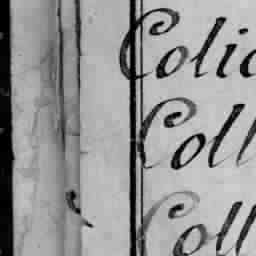 Colic
Coll
Coll